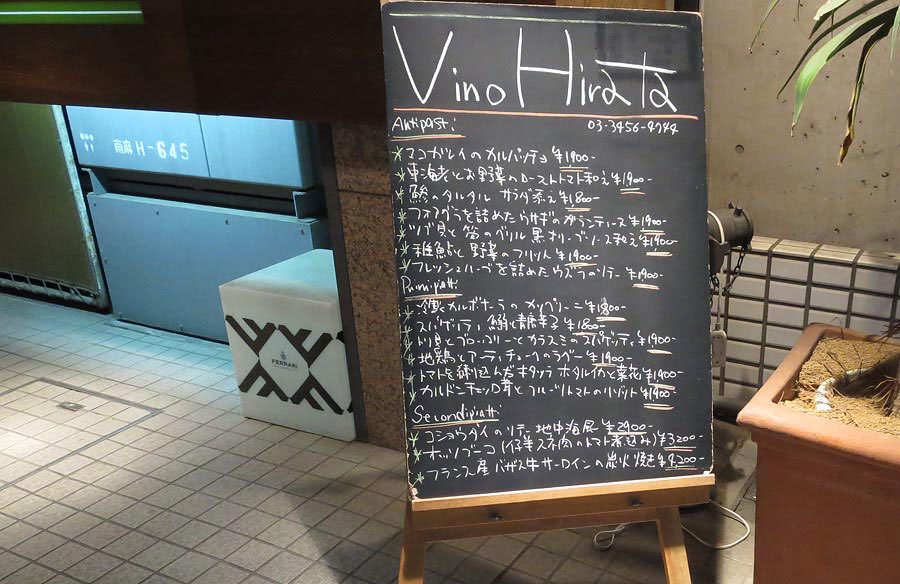 Vino Hirata
03-3456-4744
Antipasti
マコガレイのカルパッチョ ¥1900-
車海老とお野菜のローストトマト和え ¥1900-
鯵のタルタル サラダ添え ¥1800-
フォアグラを詰めたウサギのガランティーヌ ¥1900-
ツブ貝と筍のグリル 黒オリーブソース和え ¥1900-
稚鮎と野菜のフリット ¥1900-
フレッシュハーブを詰めたウズラのソテー ¥1900-
Primipiatti
冷製カルボナーラのカッペリーニ ¥1800-
スパゲッティ 鰯と青唐辛子 ¥1800-
トリ貝とブロッコリーとカラスミのスパゲッティ ¥1900-
地鶏とアーティチョークのラグー ¥1900-
トマトを練り込んだキタッラ ホタルイカと菜花 ¥1900-
カルドンチェッロ茸とフルーツトマトのリゾット ¥1900-
Secondipiatti
コショウダイのソテー 地中海風 ¥2900-
オッソブーコ (仔牛スネ肉のトマト煮込み) ¥3200-
フランス産バザス牛サーロインの炭火焼き ¥4,200-
南麻 H-645
FERRARI